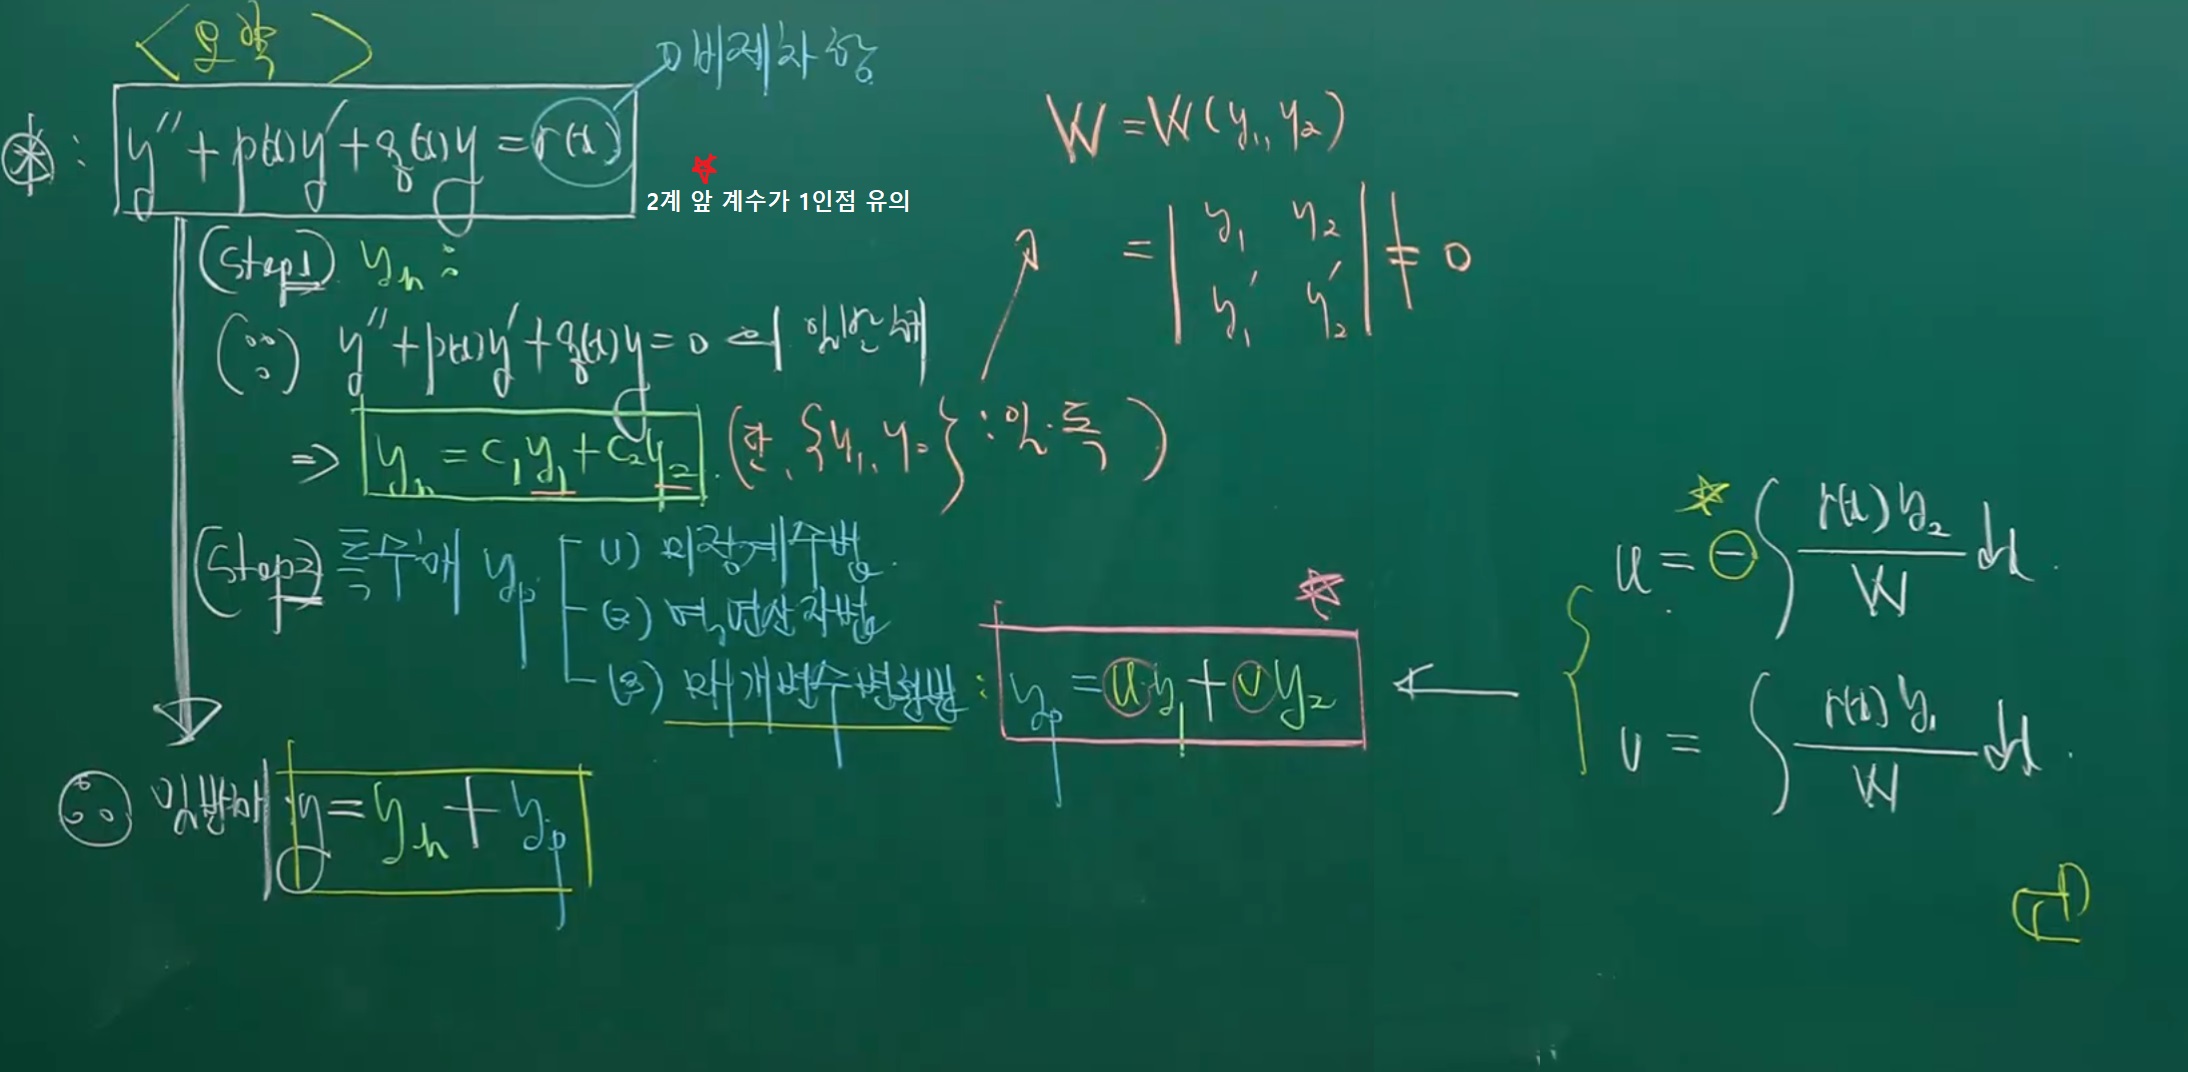 <요약>
비제차항
⊛ : y'' + p(x)y' + q(x)y = r(x)
2계 앞 계수가 1인점 유의
(Step1) y_h :
(∵) y'' + p(x)y' + q(x)y = 0 의 일반해
⇒ y_h = c₁y₁ + c₂y₂. (단, {y₁, y₂} : 일.독)
W = W(y₁, y₂)
= | y₁ y₂ |
| y₁' y₂' | ≠ 0
(Step2) 특수해 y_p
(1) 미정계수법.
(2) 역연산자법
(3) 매개변수변형법 : y_p = u y₁ + v y₂ ←
u = ⊖ ∫ r(x) y₂ / W dx.
v = ∫ r(x) y₁ / W dx.
∴ 일반해 y = y_h + y_p